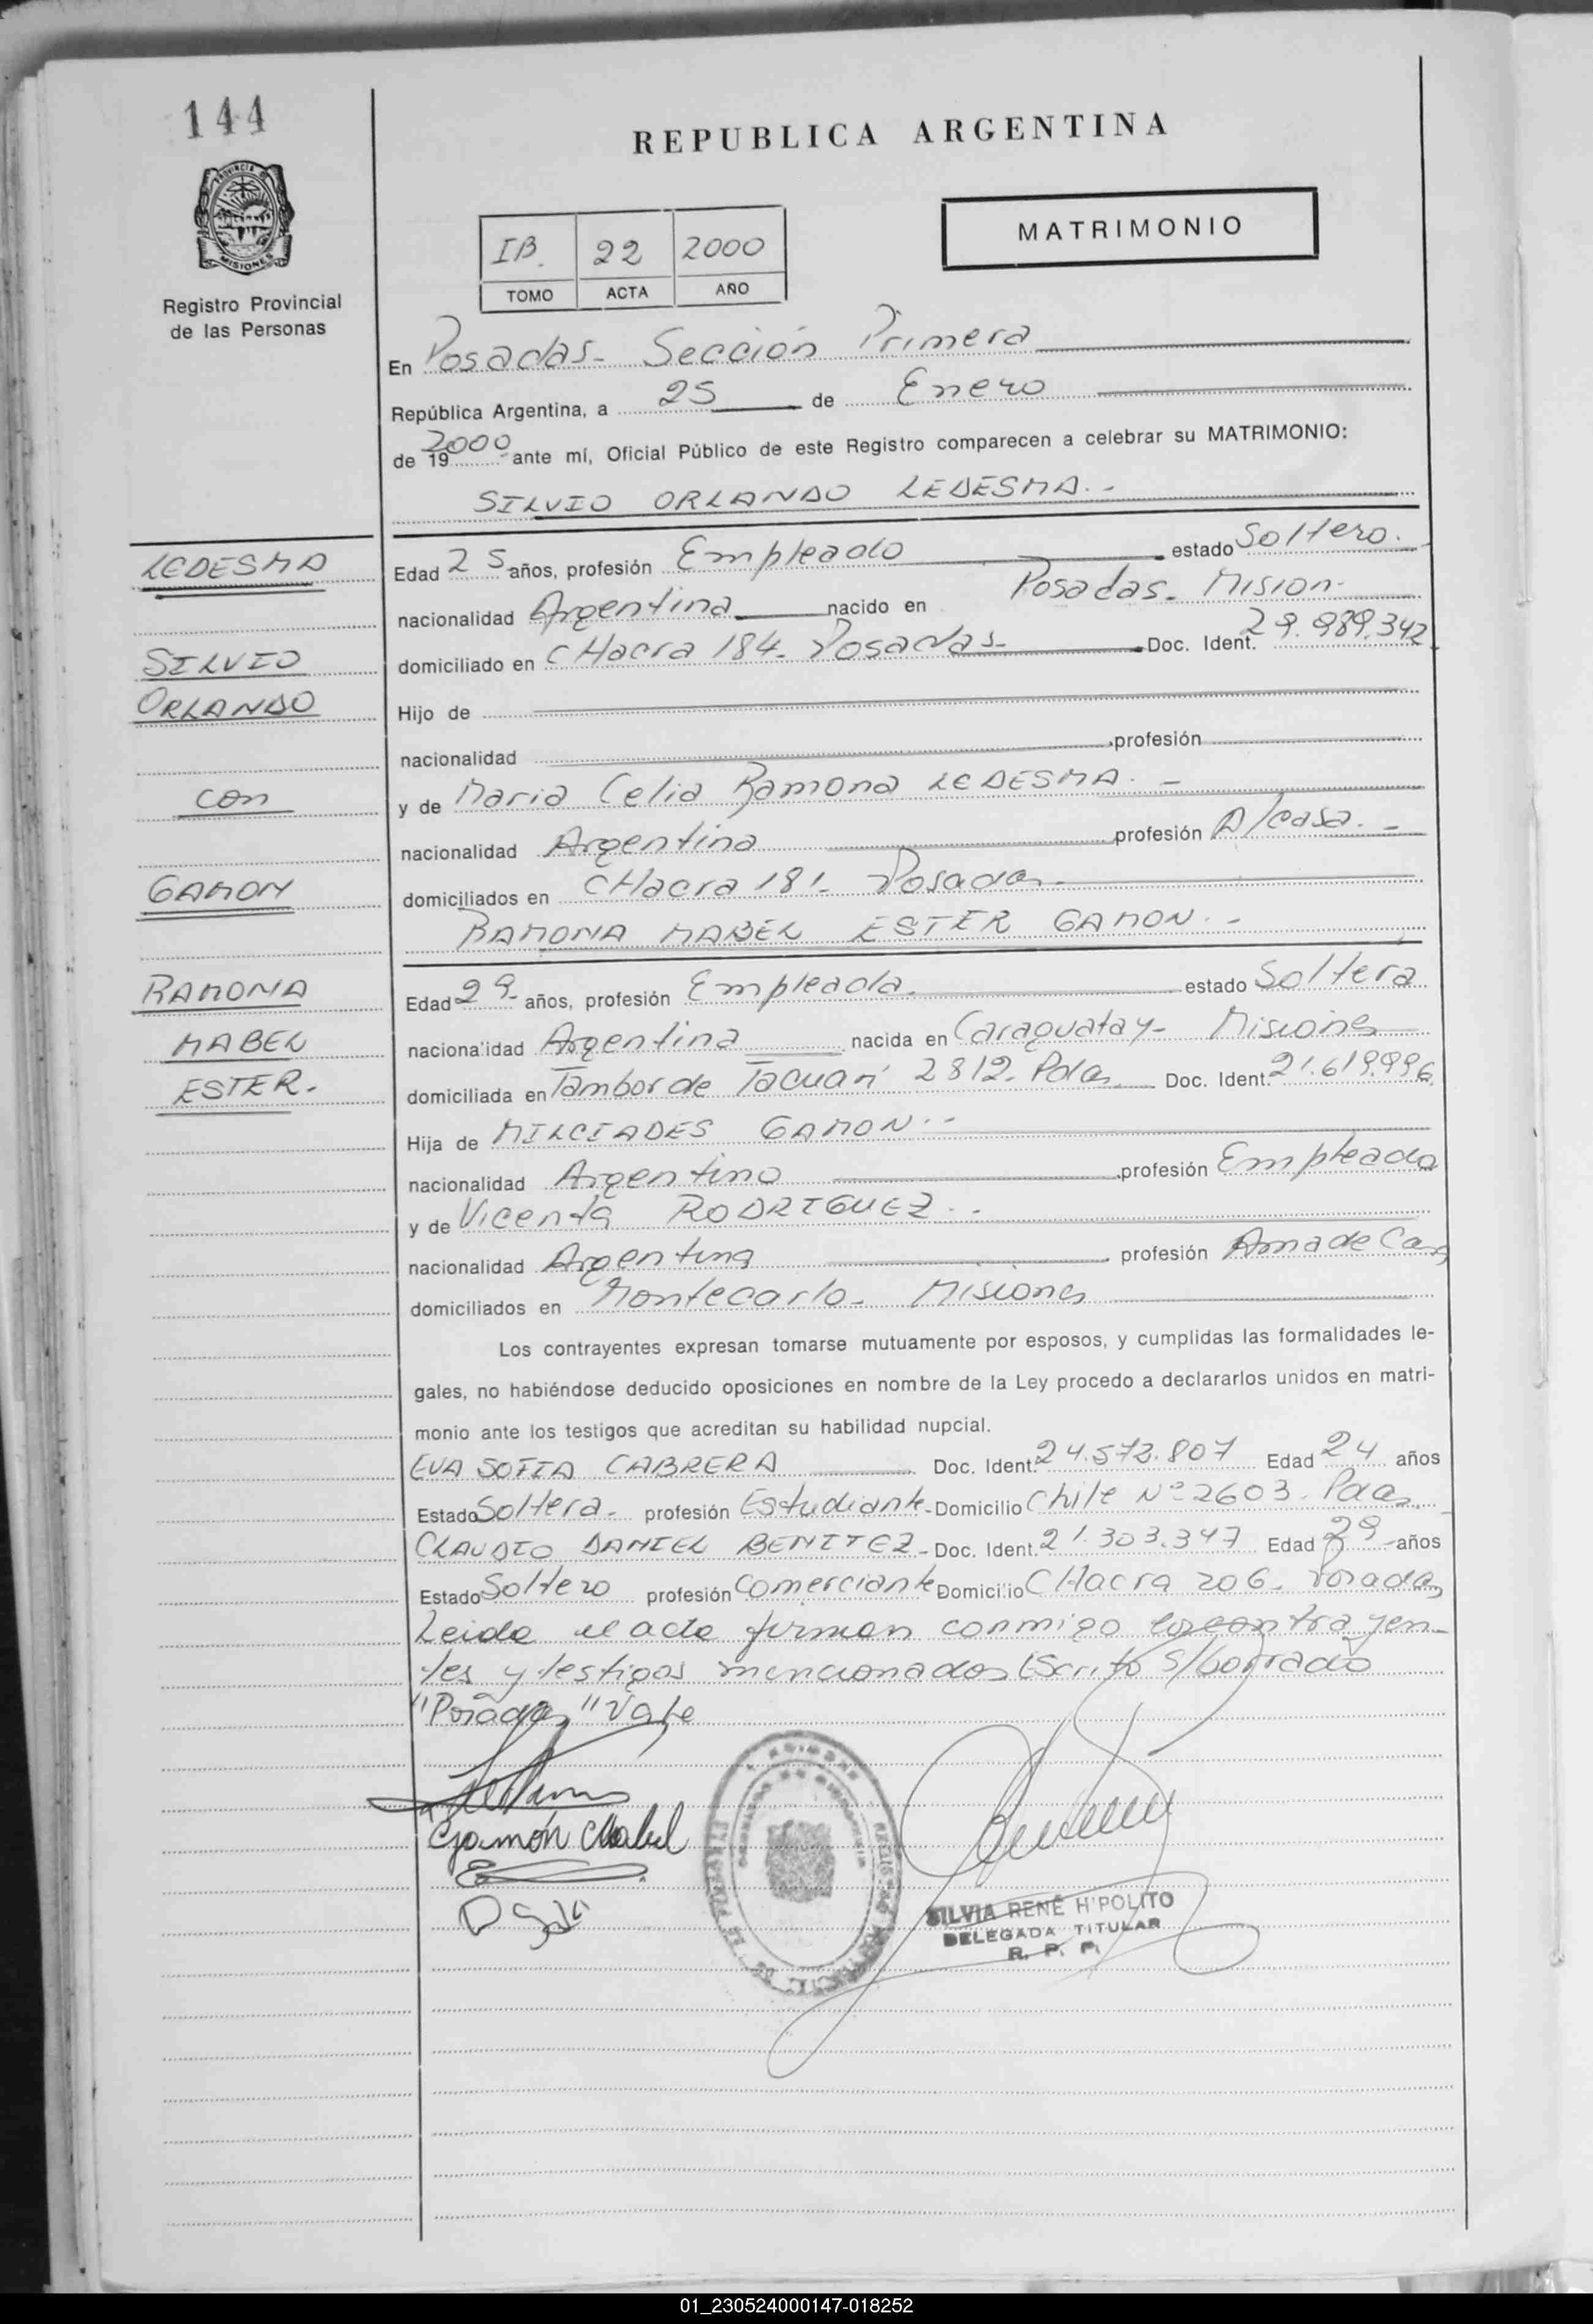 144
REPUBLICA ARGENTINA
PROVINCIA
MISIONES
Registro Provincial
de las Personas
IB. 22 2000
TOMO ACTA AÑO
MATRIMONIO
En Posadas- Sección Primera
República Argentina, a 25 de Enero
de 19 2000 ante mí, Oficial Público de este Registro comparecen a celebrar su MATRIMONIO:
SILVIO ORLANDO LEDESMA.-
LEDESMA
Edad 25 años, profesión Empleado estado Soltero.
nacionalidad Argentina nacido en Posadas- Mision-
SILVIO
domiciliado en CHacra 184- Posadas- Doc. Ident. 29.989.342
ORLANDO
Hijo de
nacionalidad profesión
con
y de Maria Celia Ramona LEDESMA.-
nacionalidad Argentina profesión A/casa.-
GAMON
domiciliados en CHacra 181- Posadas-
RAMONA MABEL ESTER GAMON.-
RAMONA
Edad 29- años, profesión Empleada. estado Soltera
MABEL
nacionalidad Argentina nacida en Caraguatay- Misiones
ESTER.-
domiciliada en Tambor de Tacuarí 2812- Pdas Doc. Ident. 21.619.996
Hija de MILCIADES GAMON.-
nacionalidad Argentino profesión Empleado
y de Vicenta RODRIGUEZ.-
nacionalidad Argentina profesión Ama de Casa
domiciliados en Montecarlo- Misiones
Los contrayentes expresan tomarse mutuamente por esposos, y cumplidas las formalidades le-
gales, no habiéndose deducido oposiciones en nombre de la Ley procedo a declararlos unidos en matri-
monio ante los testigos que acreditan su habilidad nupcial.
EVA SOFIA CABRERA Doc. Ident. 24.573.807 Edad 24 años
Estado Soltera- profesión Estudiante- Domicilio Chile Nº 2603- Pdas
CLAUDIO DANIEL BENITEZ- Doc. Ident. 21.303.347 Edad 29 años
Estado Soltero profesión Comerciante Domicilio CHacra 206- Posadas
Leida el acta firman conmigo los contrayen-
tes y testigos mencionados Escrito s/borrado
"Posadas" Vale
Gamón Mabel
SILVIA RENÉ HIPOLITO
DELEGADA TITULAR
R. P. P.
01_230524000147-018252